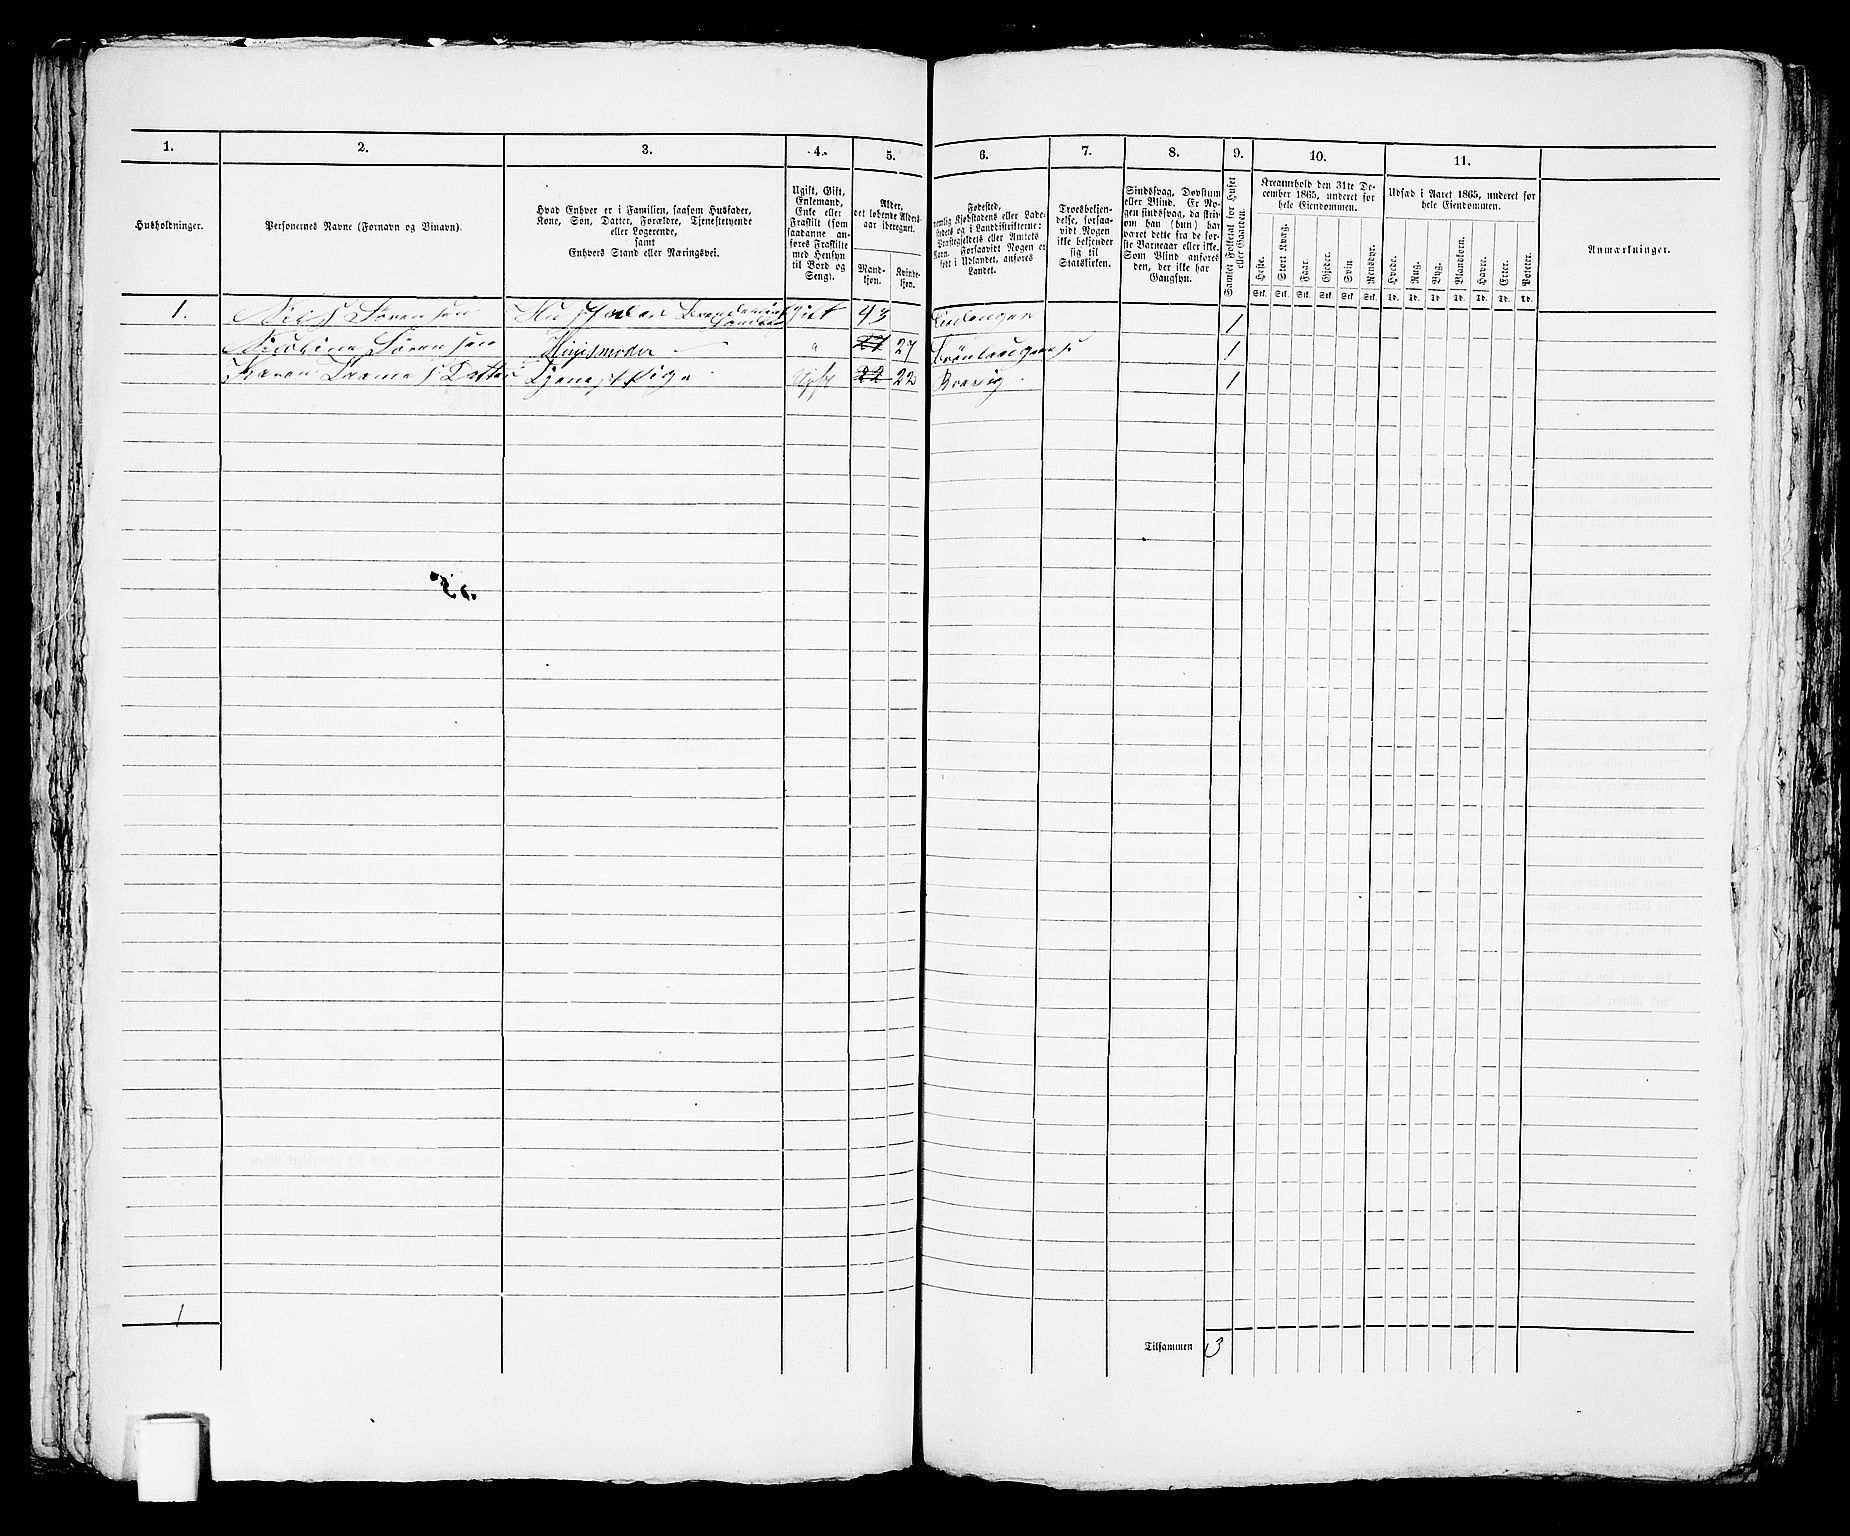 1. 2. 3. 4. 5. 6. 7. 8. 9. 10. 11.
Husholdninger.
Personernes Navne (Fornavn og Binavn).
Hvad Enhver er i Familien, saasom Husfader,
Kone, Søn, Datter, Forældre, Tjenestetyende
eller Logerende,
samt
Enhvers Stand eller Næringsvei.
Ugift, Gift,
Enkemand,
Enke eller
Fraskilt (som
saadanne an-
føres Fraskilte
med Hensyn
til Bord og
Seng).
Alder,
det løbende Alders-
aar iberegnet.
Mand-
kjøn.
Kvinde-
kjøn.
Fødested,
nemlig Kjøbstadens eller Lade-
stedets og i Landdistrikterne:
Præstegjeldets eller Amtets
Navn. Forsaavidt Nogen er
født i Udlandet, anføres
Landet.
Troesbekjen-
delse, forsaa-
vidt Nogen
ikke bekjender
sig til
Statskirken.
Sindssvag, Døvstum
eller Blind. Er No-
gen sindssvag, da skriv
om han (hun) har
været dette fra de før-
ste Barneaar eller ikke.
Som Blind anføres
den, der ikke har
Gangsyn.
Samlet Folketal for Huset
eller Gaarden.
Kreaturhold den 31te De-
cember 1865, underet for
hele Eiendommen.
Heste. Stort Kvæg. Faar. Gjeder. Svin. Rensdyr.
Stk. Stk. Stk. Stk. Stk. Stk.
Udsæd i Aaret 1865, underet for
hele Eiendommen.
Hvede. Rug. Byg. Blandkorn. Havre. Erter. Poteter.
Td. Td. Td. Td. Td. Td. Td.
Anmærkninger.
1. Nils Sørensen Gift 43 1
Nicoline Sørensen Huusmoder " 27 27 1
Karen Datter Tjenestpige Ugift 22 22 1
1
Tilsammen 3